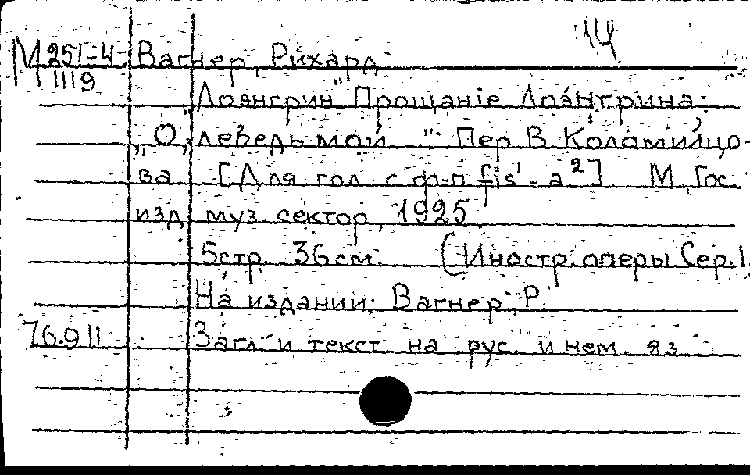 14
М 251-4 Вагнер, Рихард
1119
"Лоэнгрин" Прощание Лоэнгрина:
"О, лебедь мой ..." Пер. В. Коломийцо-
ва [Для гол. с ф-п. fis¹-a²] М., Гос.
изд. муз. сектор, 1925.
5 стр. 36 см. (Иностр. оперы Сер. 1.
На издании: Вагнер, Р.
76.911 Загл. и текст на рус. и нем. яз.